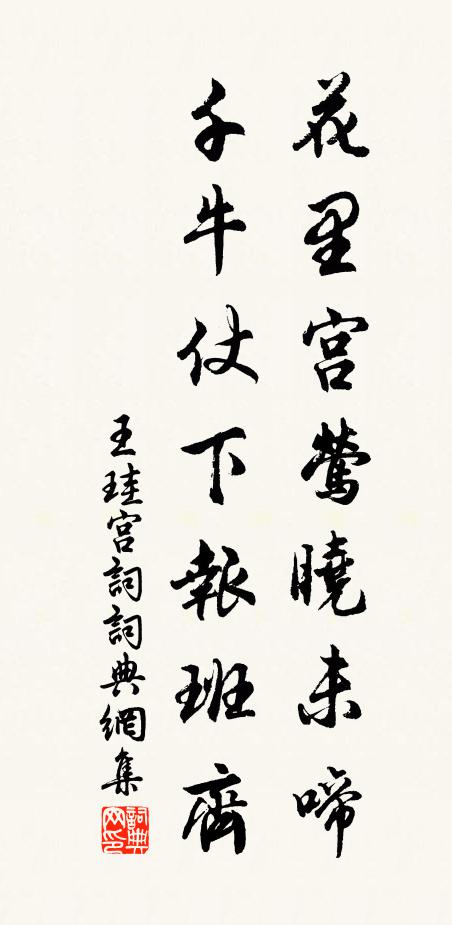 花里宫莺曉未啼
千牛仗下報班齊
王珪宫詞詞典網集
詞典网印